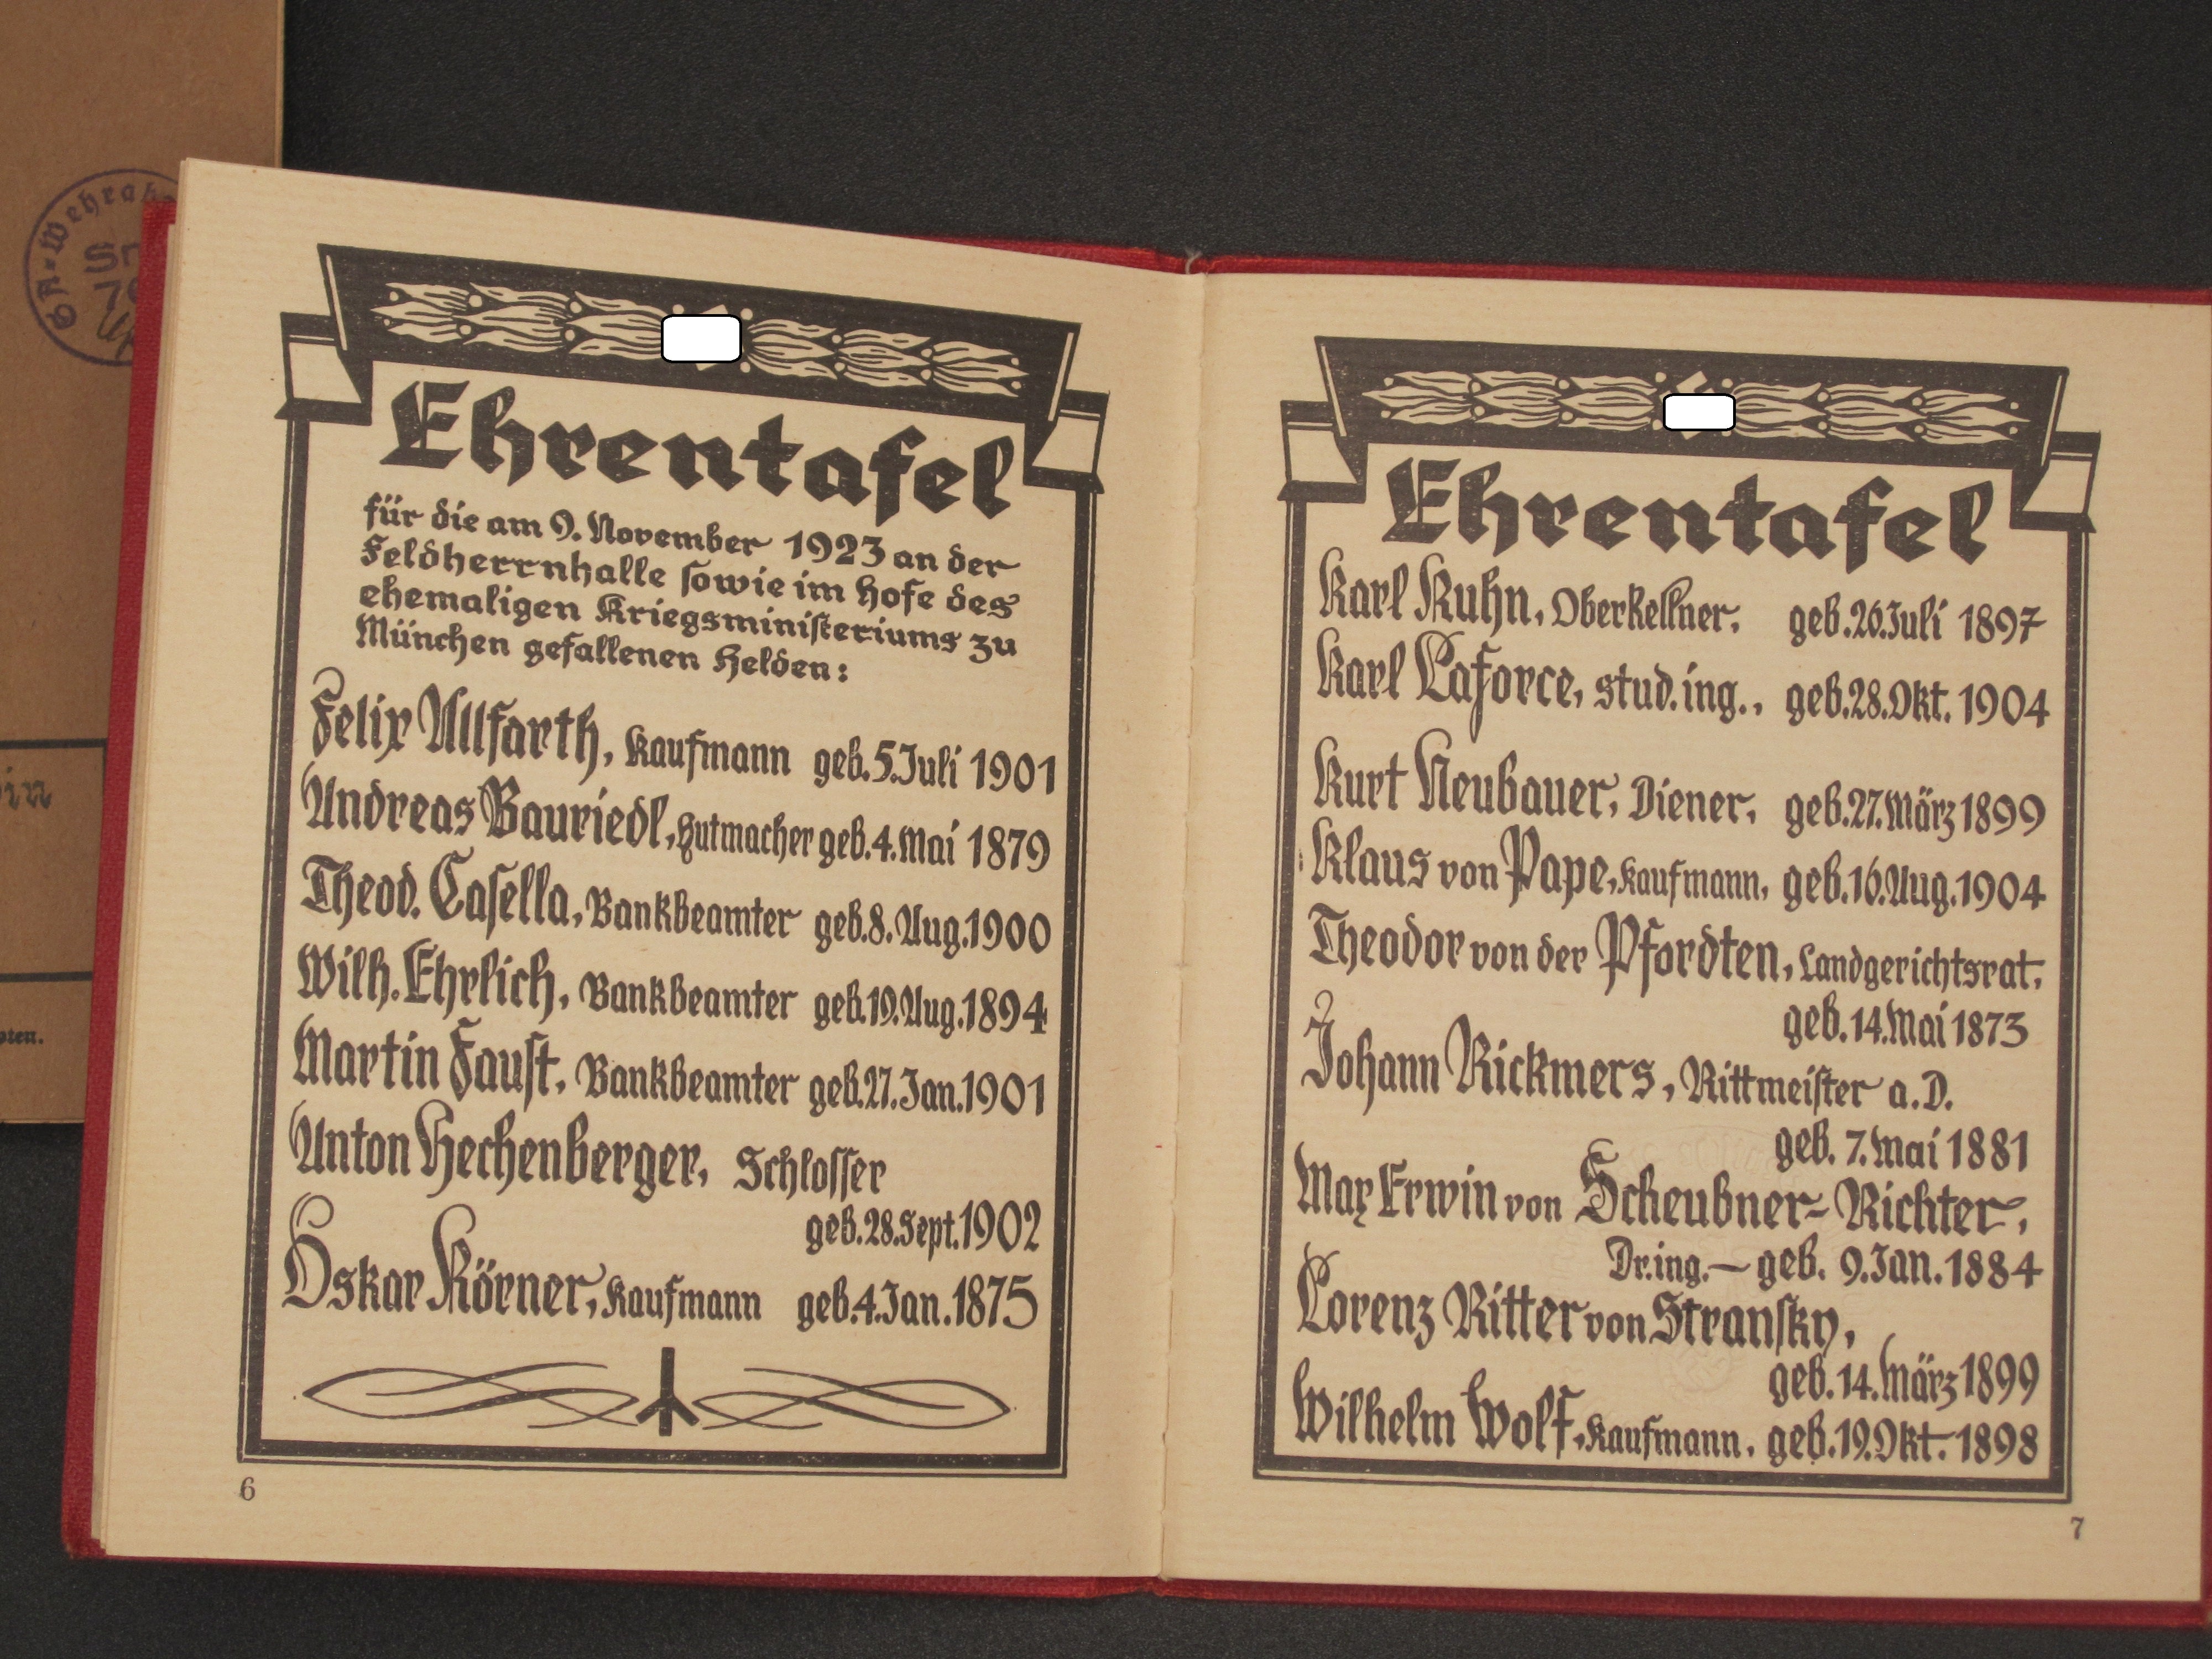 SA-Wehra
Ehrentafel
für die am 9. November 1923 an der
Feldherrnhalle sowie im Hofe des
ehemaligen Kriegsministeriums zu
München gefallenen Helden:
Felix Allfarth, Kaufmann geb. 5. Juli 1901
Andreas Bauriedl, Hutmacher geb. 4. Mai 1879
Theod. Casella, Bankbeamter geb. 8. Aug. 1900
Wilh. Ehrlich, Bankbeamter geb. 19. Aug. 1894
Martin Faust, Bankbeamter geb. 27. Jan. 1901
Anton Hechenberger, Schlosser
geb. 28. Sept. 1902
Oskar Körner, Kaufmann geb. 4. Jan. 1875
6
Ehrentafel
Karl Kuhn, Oberkellner, geb. 26. Juli 1897
Karl Laforce, stud. ing., geb. 28. Okt. 1904
Kurt Neubauer, Diener, geb. 27. März 1899
Klaus von Pape, Kaufmann, geb. 16. Aug. 1904
Theodor von der Pfordten, Landgerichtsrat,
geb. 14. Mai 1873
Johann Rickmers, Rittmeister a. D.
geb. 7. Mai 1881
Max Erwin von Scheubner-Richter,
Dr. ing. — geb. 9. Jan. 1884
Lorenz Ritter von Stransky,
geb. 14. März 1899
Wilhelm Wolf, Kaufmann, geb. 19. Okt. 1898
7